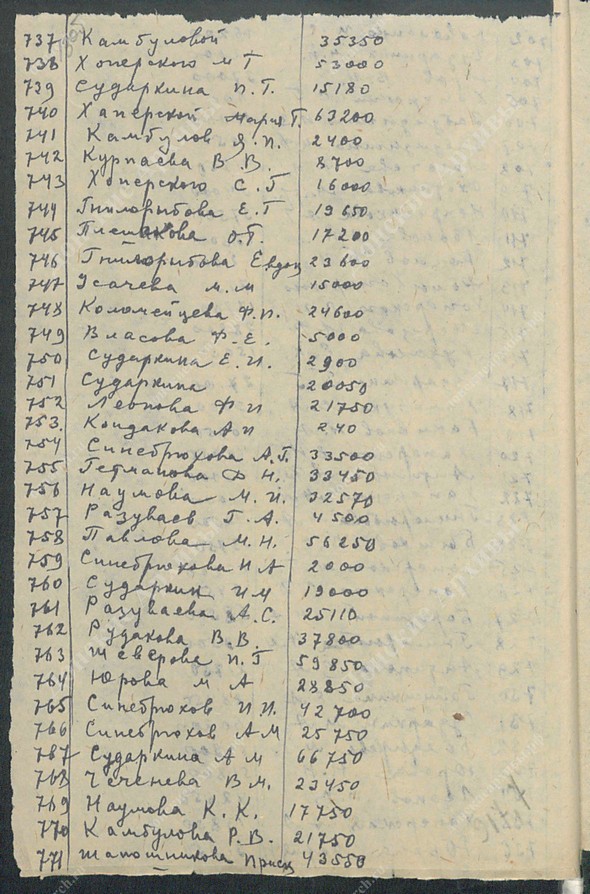 737 Камбуловой 35350
738 Хоперского М Т 53000
739 Сударкина П. Т. 15180
740 Хаперской Мария Т. 63200
741 Камбулов Я. П. 2400
742 Курпаева В. В. 8700
743 Хоперского С. Г 16000
744 Гнилорыбова Е. Г 19650
745 Плешакова О. Г. 17200
746 Гнилорыбова Евдок 23600
747 Усачева М. М 15000
748 Коломейцева Ф. П. 24600
749 Власова Ф. Е. 5000
750 Сударкина Е. И. 2900
751 Сударкина 20050
752 Леонова Ф И 21750
753. Кондакова А И 240
754 Синебрюхова А. Г. 33500
755 Гетманова Ф Н. 33450
756 Наумова М. И. 32570
757 Разуваев Г. А. 4500
758 Павлова М. Н. 56250
759 Синебрюхова Н А 2000
760 Сударкин И М 19000
761 Разуваева А. С. 25110
762 Рудакова В. В. 37800
763 Шеверова П. Г 59850
764 Юрова М А 28850
765 Синебрюхов И. И. 42700
766 Синебрюхов А М 25750
767 Сударкина А М 66750
768 Чеченева В М. 23450
769 Наумова К. К. 17750
770 Камбулова Р. В. 21750
771 Шапошникова Праск 43550